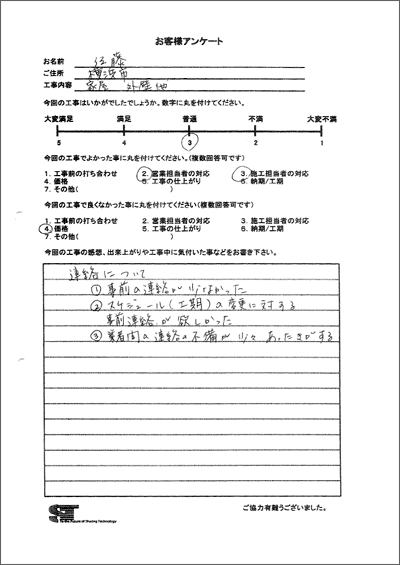 お客様アンケート
お名前 佐藤
ご住所 横浜市
工事内容 家屋 外壁 他
今回の工事はいかがでしたでしょうか。数字に丸を付けてください。
大変満足 満足 普通 不満 大変不満
5 4 3 2 1
今回の工事でよかった事に丸を付けてください。(複数回答可です)
1. 工事前の打ち合わせ 2. 営業担当者の対応 3. 施工担当者の対応
4. 価格 5. 工事の仕上がり 6. 納期/工期
7. その他( )
今回の工事で良くなかった事に丸を付けてください(複数回答可です)
1. 工事前の打ち合わせ 2. 営業担当者の対応 3. 施工担当者の対応
4. 価格 5. 工事の仕上がり 6. 納期/工期
7. その他( )
今回の工事の感想、出来上がりや工事中に気付いた事などをお書き下さい。
連絡について
① 事前の連絡が少なかった
② スケジュール(工期)の変更に対する
事前連絡が欲しかった
③ 業者間の連絡の不備が少々あった気がする
ご協力有難うございました。
To the Future of Sharing Technology